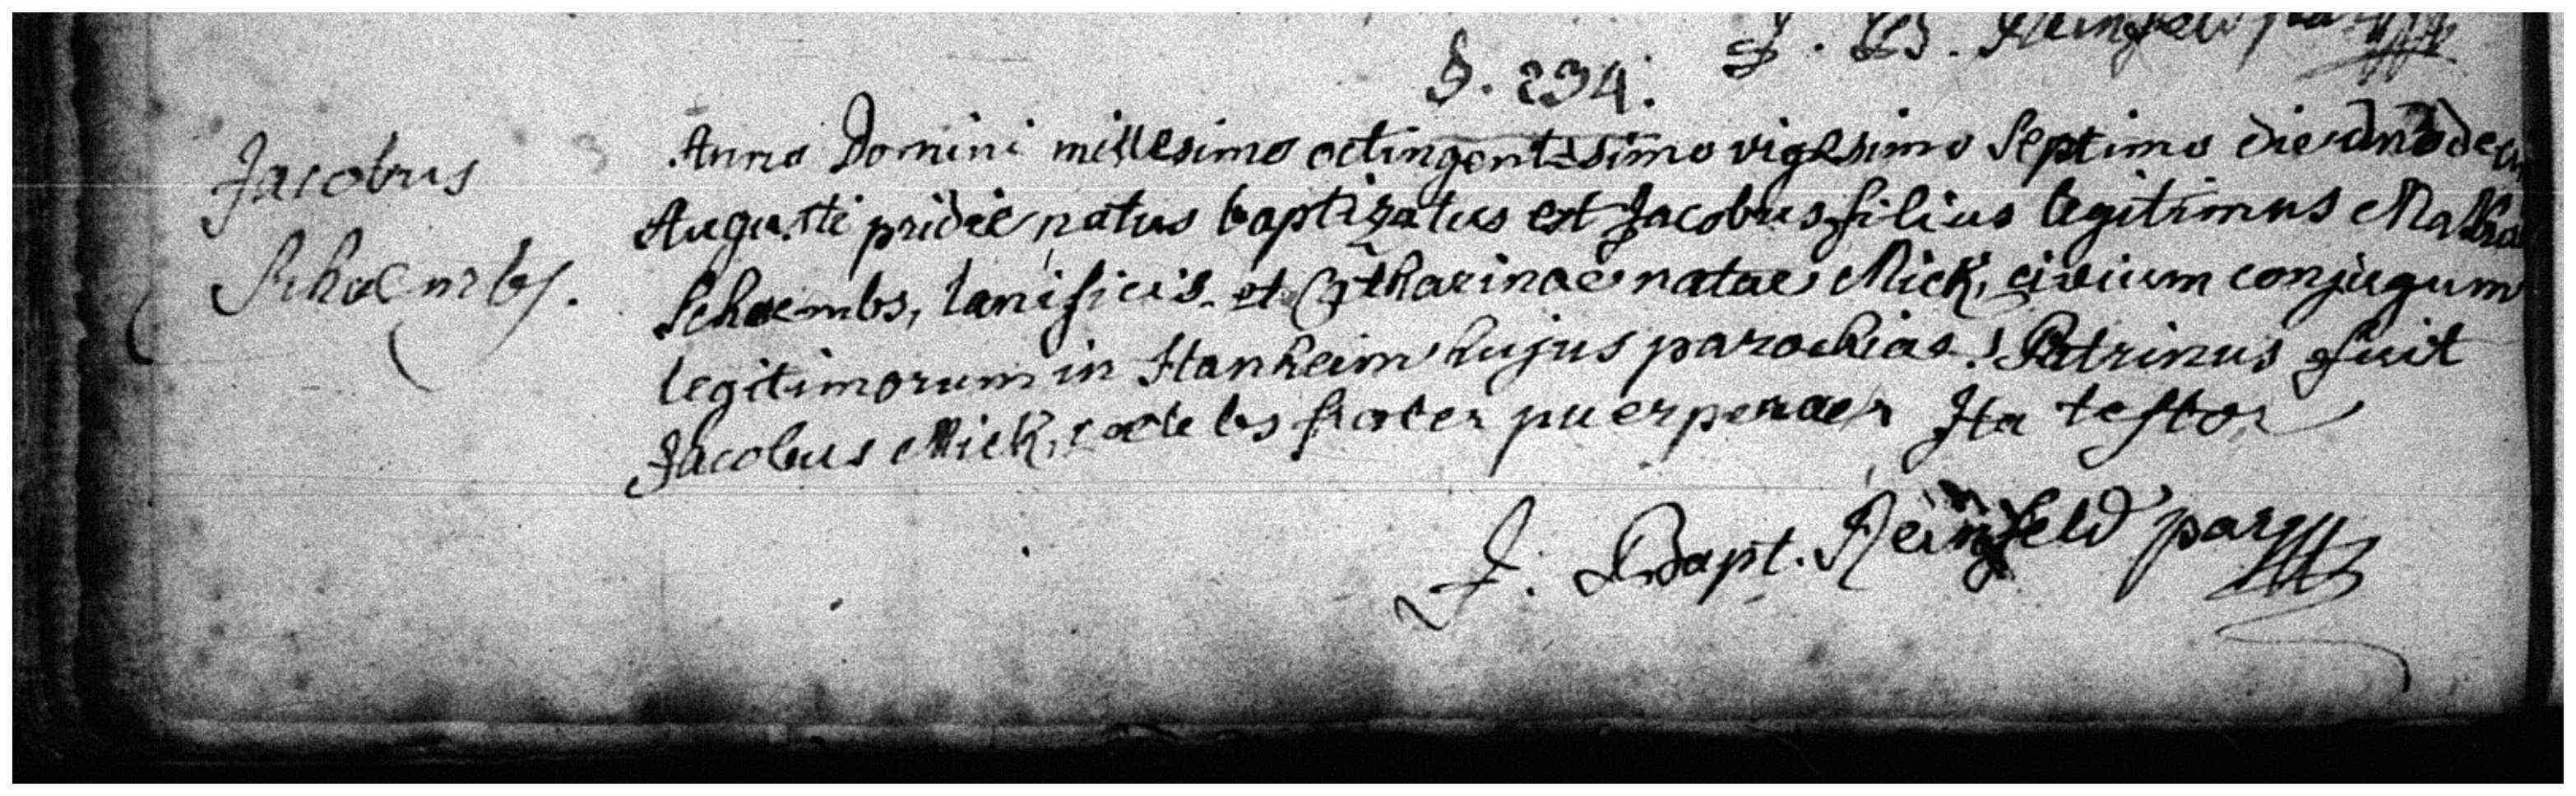 J. B.
§. 234.
Jacobus
Schaembs.
Anno Domini millesimo octingentesimo vigesimo Septimo die
Augusti pridie natus baptizatus est Jacobus filius legitimus
Schaembs, lanificis et Catharinae natae Mick, civium conjugum
legitimorum in Stanheim hujus parochiae. Patrinus fuit
Jacobus Mick, caelebs frater puerperae. Ita testor
J. Bapt. Reinfeld par